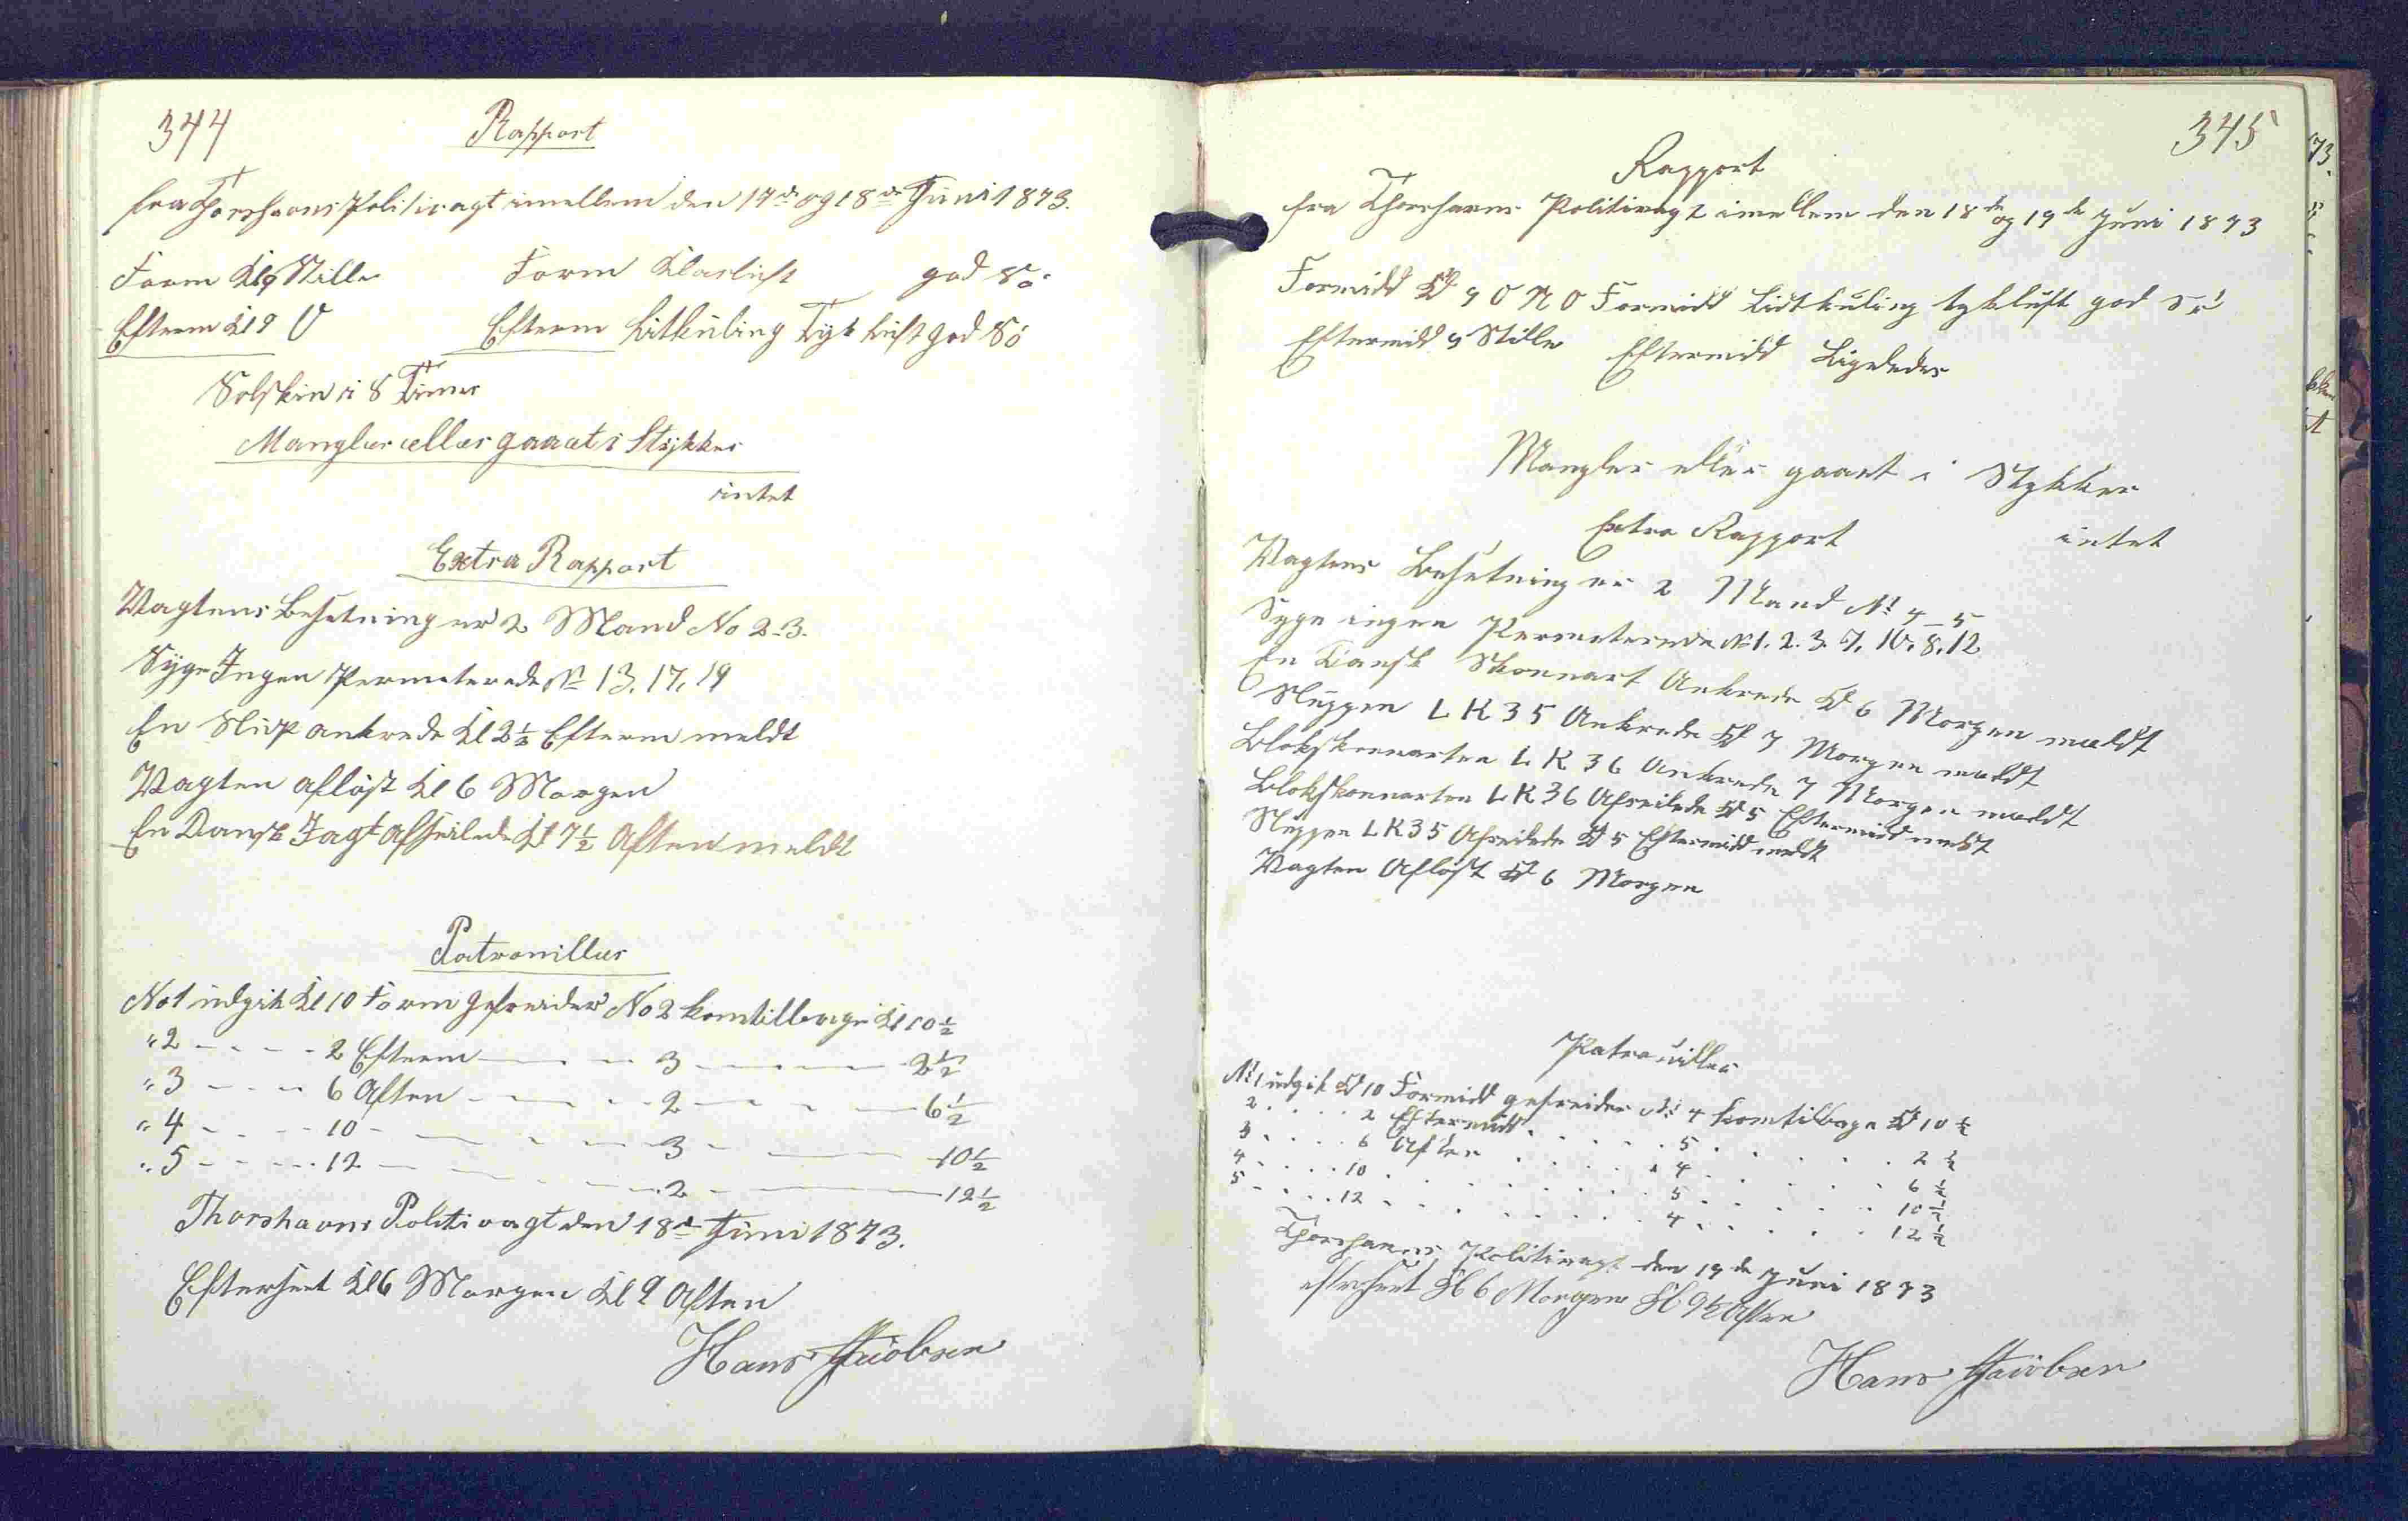 344
Rapport
fra Thorshavns Politivagt imellem den 17de og 18de Juni 1873.
Form Kl 9 Stille Form Klarluft god Sø
Efterm Kl 9 V Efterm Litkuling Tyk Luft god Sø
Solskin i 8 Timer
Mangler eller gaaet i Stykker
intet
Extra Rapport
Vagtens Besetning er 2 Mand No 2-3.
Syge Ingen Permeterede No 13, 17, 19
En Slup ankrede Kl 2½ Efterm meldt
Vagten afløst Kl 6 Morgen
En Dansk Jagt afseilede Kl 7½ Aften meldt
Patrouiller
No 1 udgik Kl 10 Form Gefreider No 2 kom tilbage Kl 10½
" 2 - - - - 2 Efterm - - - 3 - - - 2½
" 3 - - - 6 Aften - - - 2 - - - 6½
" 4 - - - 10 - - - 3 - - - 10½
" 5 - - - 12 - - - 2 - - - 12½
Thorshavns Politivagt den 18de Juni 1873.
Efterseet Kl 6 Morgen Kl 9 Aften
Hans Jacobsen
345
Rapport
fra Thorshavns Politivagt imellem den 18de og 19de Juni 1873
Formidd Kl 9 O N O Formidd Lidtkuling tykluft god Sø
Eftermidd 9 Stille Eftermidd Ligeledes
Mangler eller gaaet i Stykker
intet
Extra Rapport
Vagtens Besetning er 2 Mand No 4-5
Syge ingen Permeterede No 1. 2. 3. 7. 10. 8. 12
En Dansk Skonnart Ankrede Kl 6 Morgen meldt
Sluppen L K 35 Ankrede Kl 7 Morgen meldt
Blokskonnarten L K 36 Ankrede 7 Morgen meldt
Blokskonnarten L K 36 Afseilede Kl 5 Eftermidd meldt
Sluppen L K 35 Afseilede Kl 5 Eftermidd meldt
Vagten Afløst Kl 6 Morgen
Patrouiller
No 1 udgik Kl 10 Formidd gefreider No 4 kom tilbage Kl 10½
2 . . . . 2 Eftermidd . . . . . 5 . . . . . 2½
3 . . . . 6 Aften . . . . 4 . . . . . 6½
4 . . . . 10 . . . . . 5 . . . . . 10½
5 . . . . 12 . . . . . 4 . . . . . 12½
Thorshavns Politivagt den 19de Juni 1873
efterseet Kl 6 Morgen Kl 9½ Aften
Hans Jacobsen